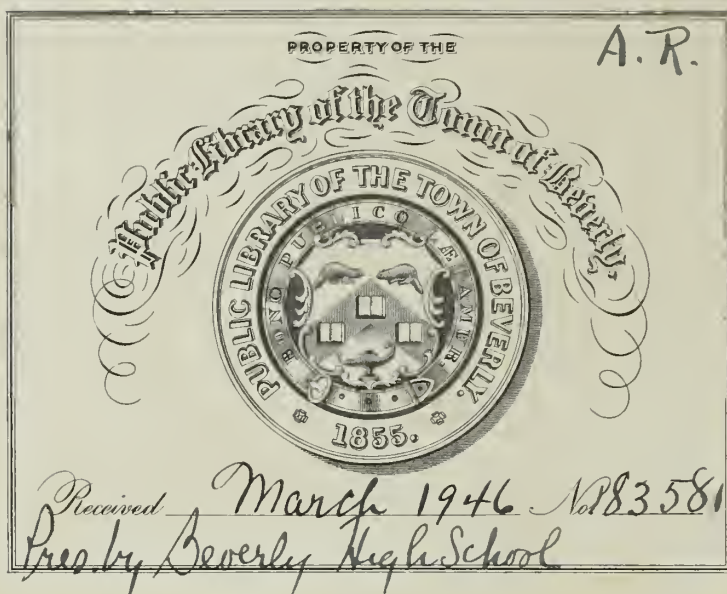 PROPERTY OF THE
A. R.
Public Library of the Town of Beverly,
PUBLIC LIBRARY OF THE TOWN OF BEVERLY.
BONO PUBLICO
1855.
Received March 1946 No. 183581
Pres. by Beverly High School